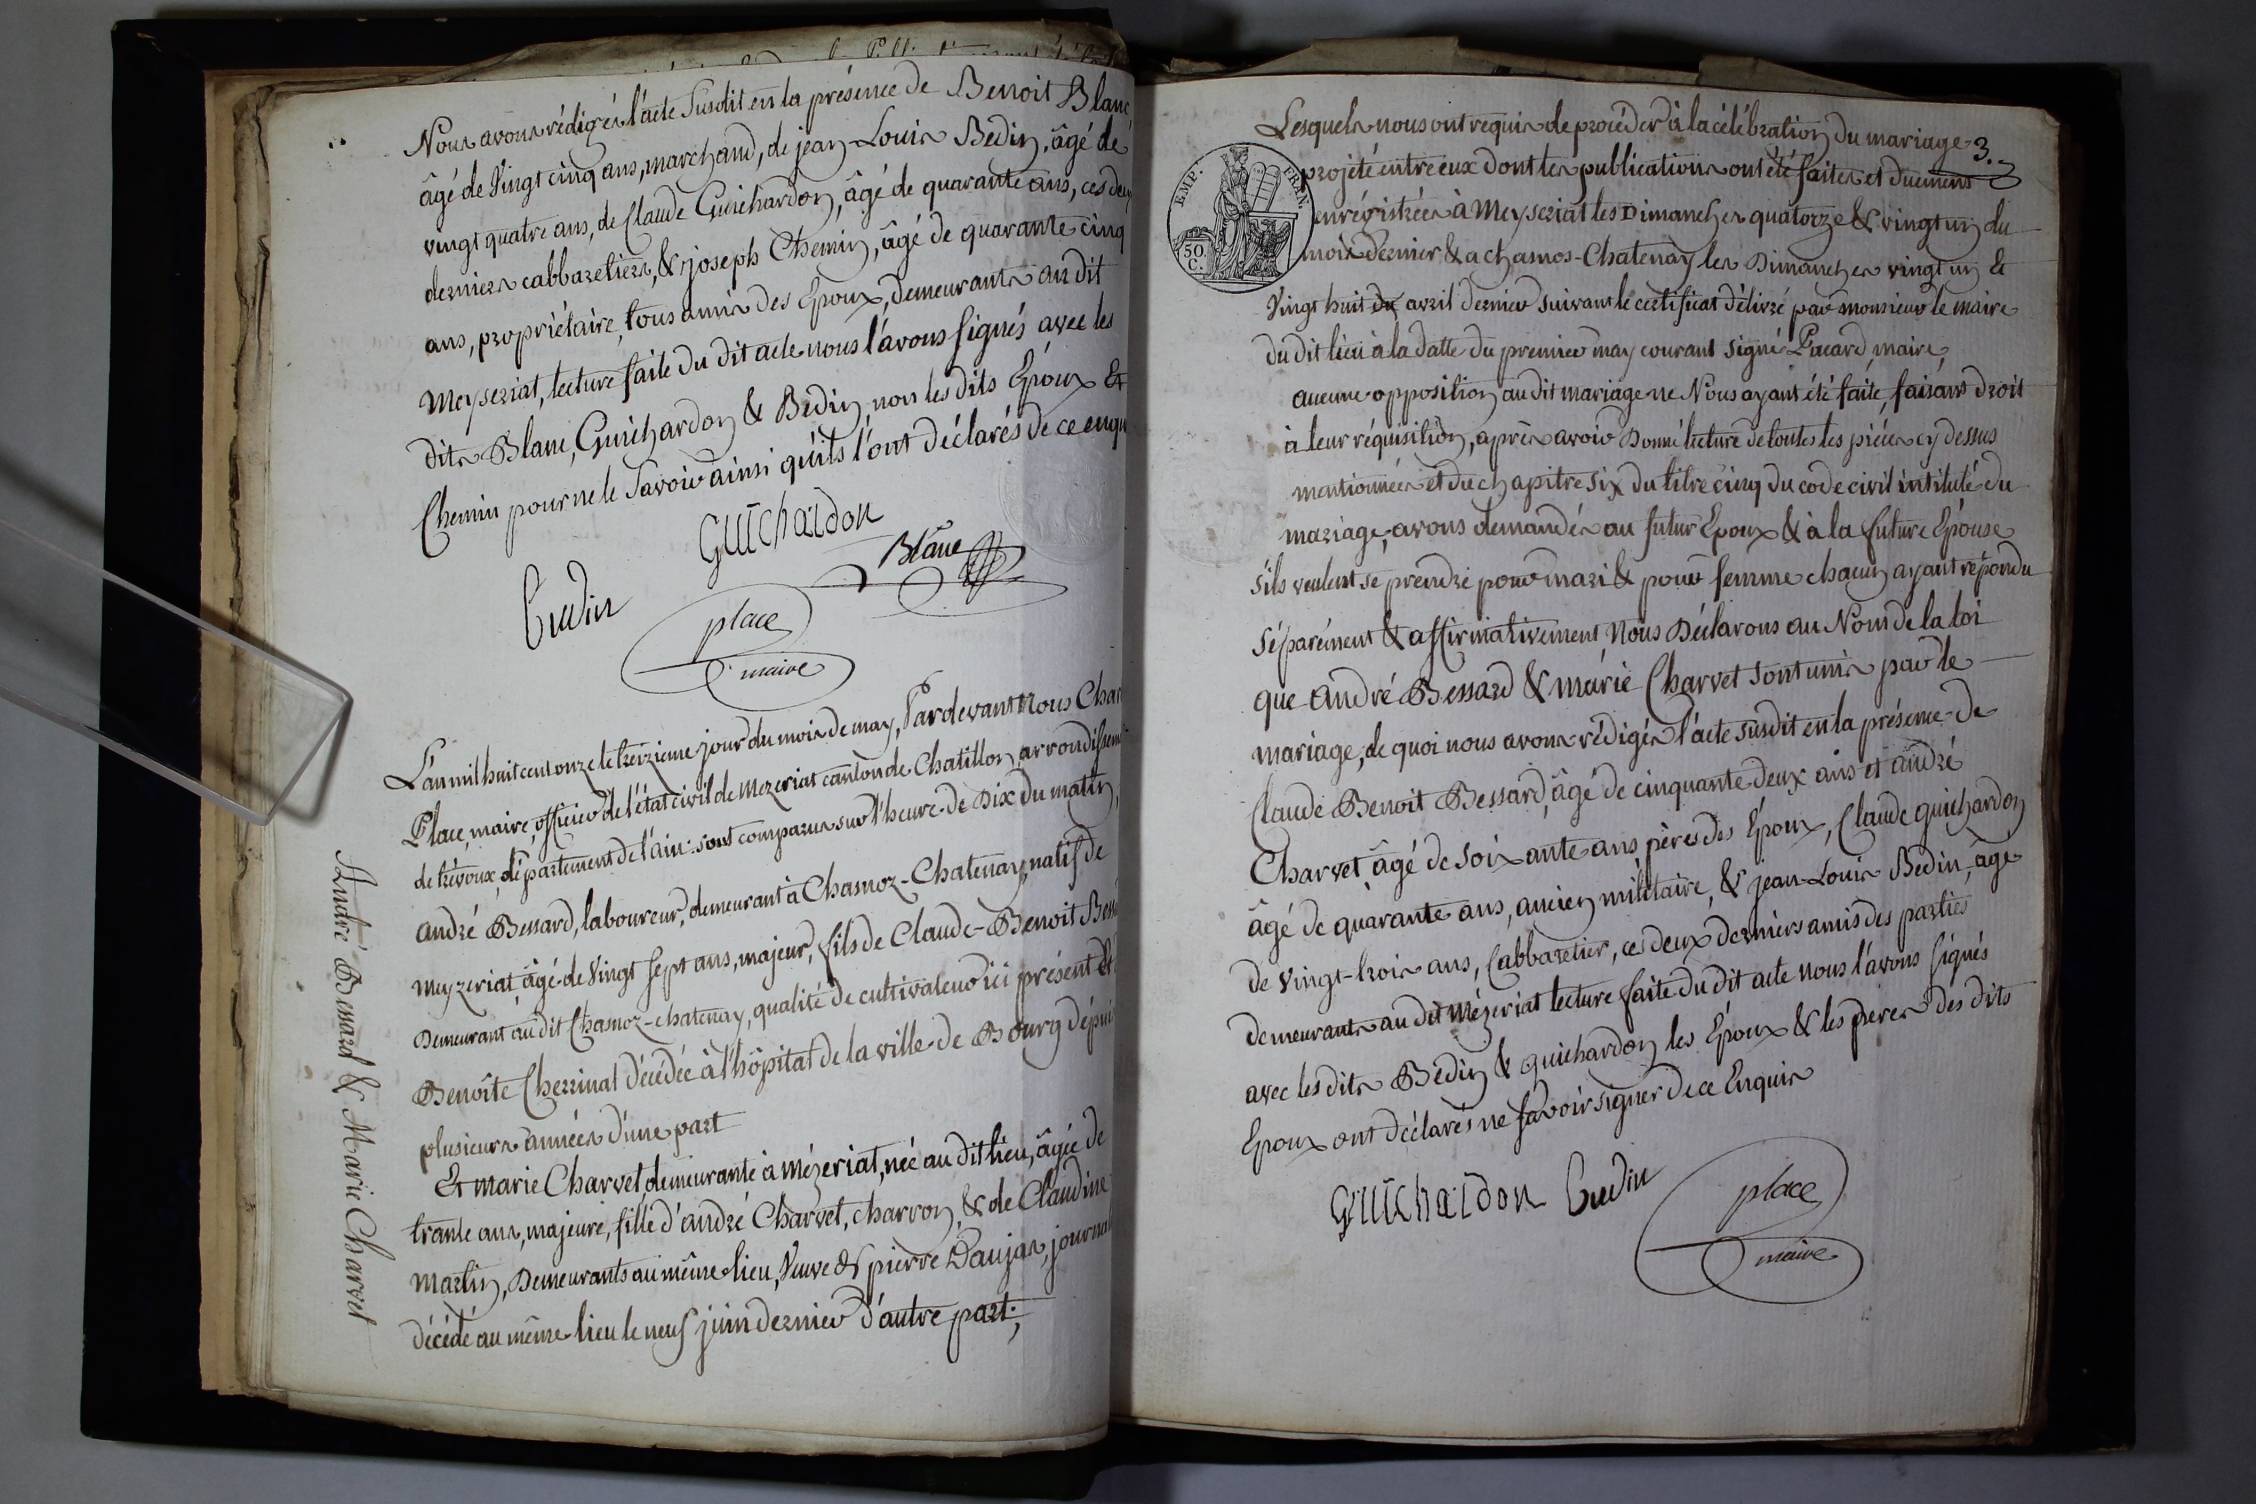 Nous avons rédigés l'acte Susdit en la présence de Benoit Blanc
âgé de Vingt cinq ans, marchand, de jean-Louis Bedin, âgé de
vingt quatre ans, de Claude Guichardon, âgé de quarante ans, ces deux
derniers cabbaretiers, & joseph Chemin, âgé de quarante cinq
ans, propriétaire, tous amis des Epoux, demeurants au dit
Meyseriat, lecture faite du dit acte nous l'avons signés avec les
dits Blanc, Guichardon & Bedin, non les dits Epoux Et
Chemin pour ne le Savoir ainsi qu'ils l'ont déclarés de ce enqu
GUiChaidon
Blanc
Bedin
place
maire
L'an mil huit cent onze le treizieme jour du mois de may, Pardevant Nous Char
Place, maire, officier de l'état civil de Mezeriat canton de Chatillon arrondissem
de trévoux, département de l'ain: sont comparus sur l'heure de Dix du matin,
André Bessard, laboureur, demeurant à Chasnoz-Chatenay, natif de
Meyzeriat, âgé de Vingt Sept ans, majeur, fils de Claude-Benoit Bess
Demeurant au dit Chasnoz-chatenay, qualité de cultivateur ici présent Et
Benoîte Cherrinat décédée à l'hôpital de la ville de Bourg dépuis
plusieurs années d'une part
Et marie Charvet, demeurante à Mézeriat, née au dit lieu, âgée de
trante ans, majeure, fille d'andré Charvet, charron, & de Claudine
Martin, Demeurants au même lieu, Veuve de pierre Daujas, journal
décédé au même lieu le neuf juin dernier d'autre part;
André Bessard & Marie Charvet
3.
Lesquels nous ont requis de procéder à la célébration du mariage
projété entre eux dont les publications ont été faites et duement
enrégistrées à Meyseriat les Dimanches quatorze & vingt un du
mois dernier & a chasnos-Chatenay les Dimanches vingt un Et
Vingt huit du avril dernier suivant le certificat délivré par monsieur le maire
du dit lieu à la datte du premier may courant signé Pacard, maire,
aucune opposition au dit mariage ne Nous ayant été faite, faisant droit
à leur réquisition, après avoir Donné lecture de toutes les pièces cy dessus
mentionnées et du chapitre six du titre cinq du code civil intitulé du
mariage, avons demandés au futur Epoux & à la future Epouse
s'ils veulent se prendre pour mari & pour femme chacun ayant répondu
séparément & affirmativement, Nous Déclarons au Nom de la loi
que André Bessard & Marie Charvet sont unis par le
mariage, de quoi nous avons rédigés l'acte susdit en la présence de
Claude Benoit Bessard, âgé de cinquante-deux ans et andré
Charvet, âgé de soixante ans, pères des Epoux, Claude guichardon
âgé de quarante ans, ancien militaire, & jean-Louis Bedin, âgé
de vingt-trois ans, Cabbaretier, ces deux derniers amis des parties
demeurants au dit Mézeriat lecture faite du dit acte nous l'avons signés
avec les dits Bédin & guichardon les Epoux & les pères des dits
Epoux ont déclarés ne savoir signer de ce Enquis
GUiChaidon Bedin
place
maire
EMP. FRAN.
50 C.